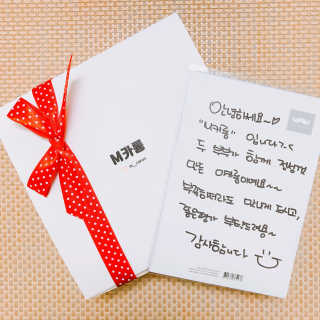 M카롱
안녕하세요~♡
"M카롱" 입니다^^
두 부부가 함께 정성껏
만든 마카롱이예요~~
부족하더라도 맛나게 드시고,
좋은평가 부탁드려용~
감사합니다